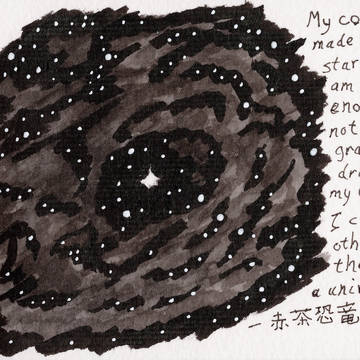 My co
made
star
am
eno
not
gra
dra
my
I c
oth
tha
a uni
一赤茶恐竜